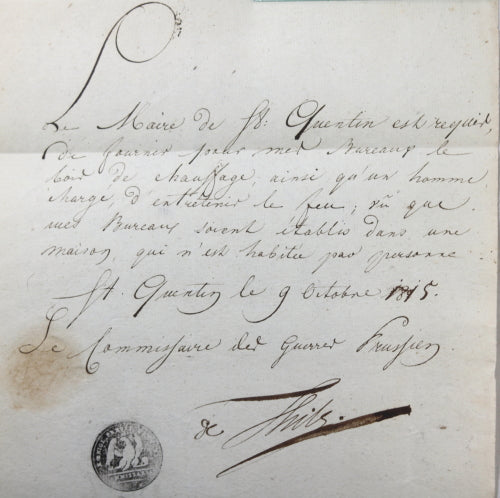 Le Maire de St. Quentin est requis,
de fournir pour mes Bureaux le
bois de chauffage, ainsi qu'un homme
chargé, d'entretenir le feu; vû que
mes Bureaux soient établis dans une
maison, qui n'est habitée par personne
St. Quentin le 9 Octobre 1815.
Le Commissaire des Guerres Prussien
de